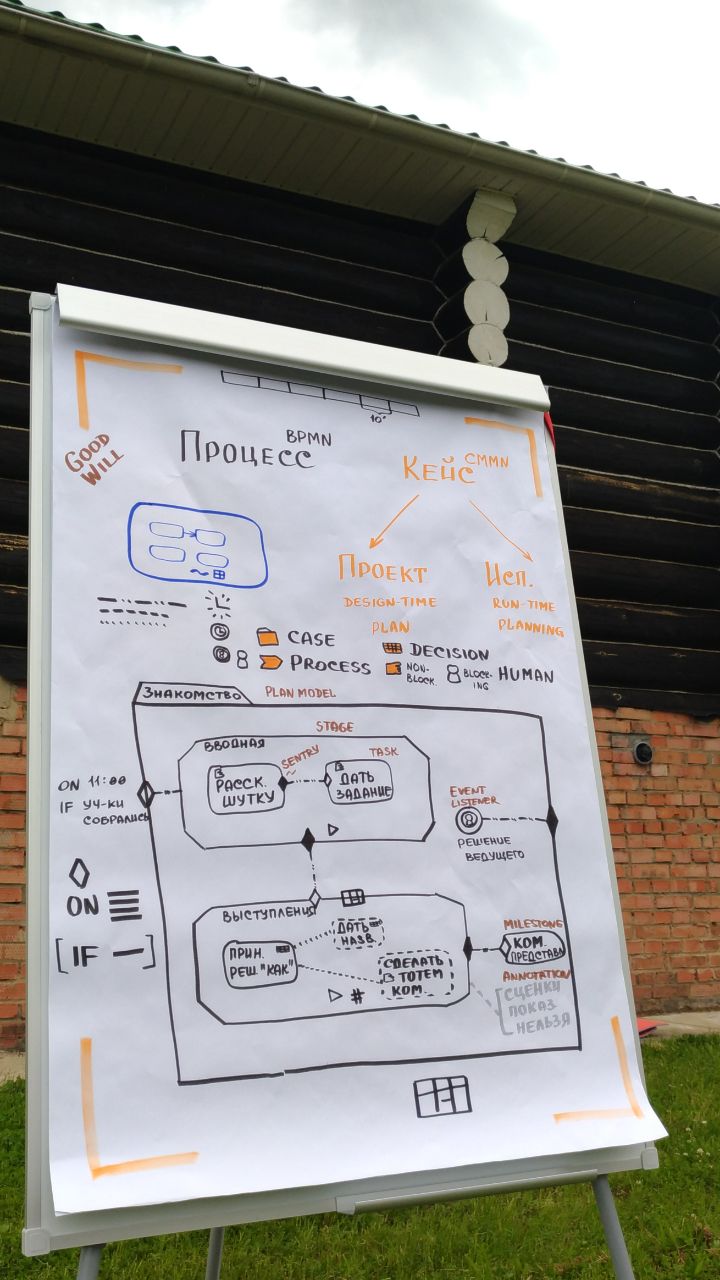 10'
GOOD
WILL
ПРОЦЕСС BPMN
КЕЙС CMMN
ПРОЕКТ
DESIGN-TIME
PLAN
ИСП.
RUN-TIME
PLANNING
CASE
PROCESS
DECISION
NON-
BLOCK.
BLOCK-
ING
HUMAN
ЗНАКОМСТВО
PLAN MODEL
STAGE
ВВОДНАЯ
SENTRY
TASK
РАССК.
ШУТКУ
ДАТЬ
ЗАДАНИЕ
ON 11:00
IF УЧ-КИ
СОБРАЛИСЬ
EVENT
LISTENER
РЕШЕНИЕ
ВЕДУЩЕГО
ON
[IF — ]
ВЫСТУПЛЕНИЯ
ПРИН.
РЕШ. "КАК"
ДАТЬ
НАЗВ.
СДЕЛАТЬ
ТОТЕМ
КОМ.
#
MILESTONE
КОМ.
ПРЕДСТАВЛ
ANNOTATION
СЦЕНКИ
ПОКАЗ
НЕЛЬЗЯ